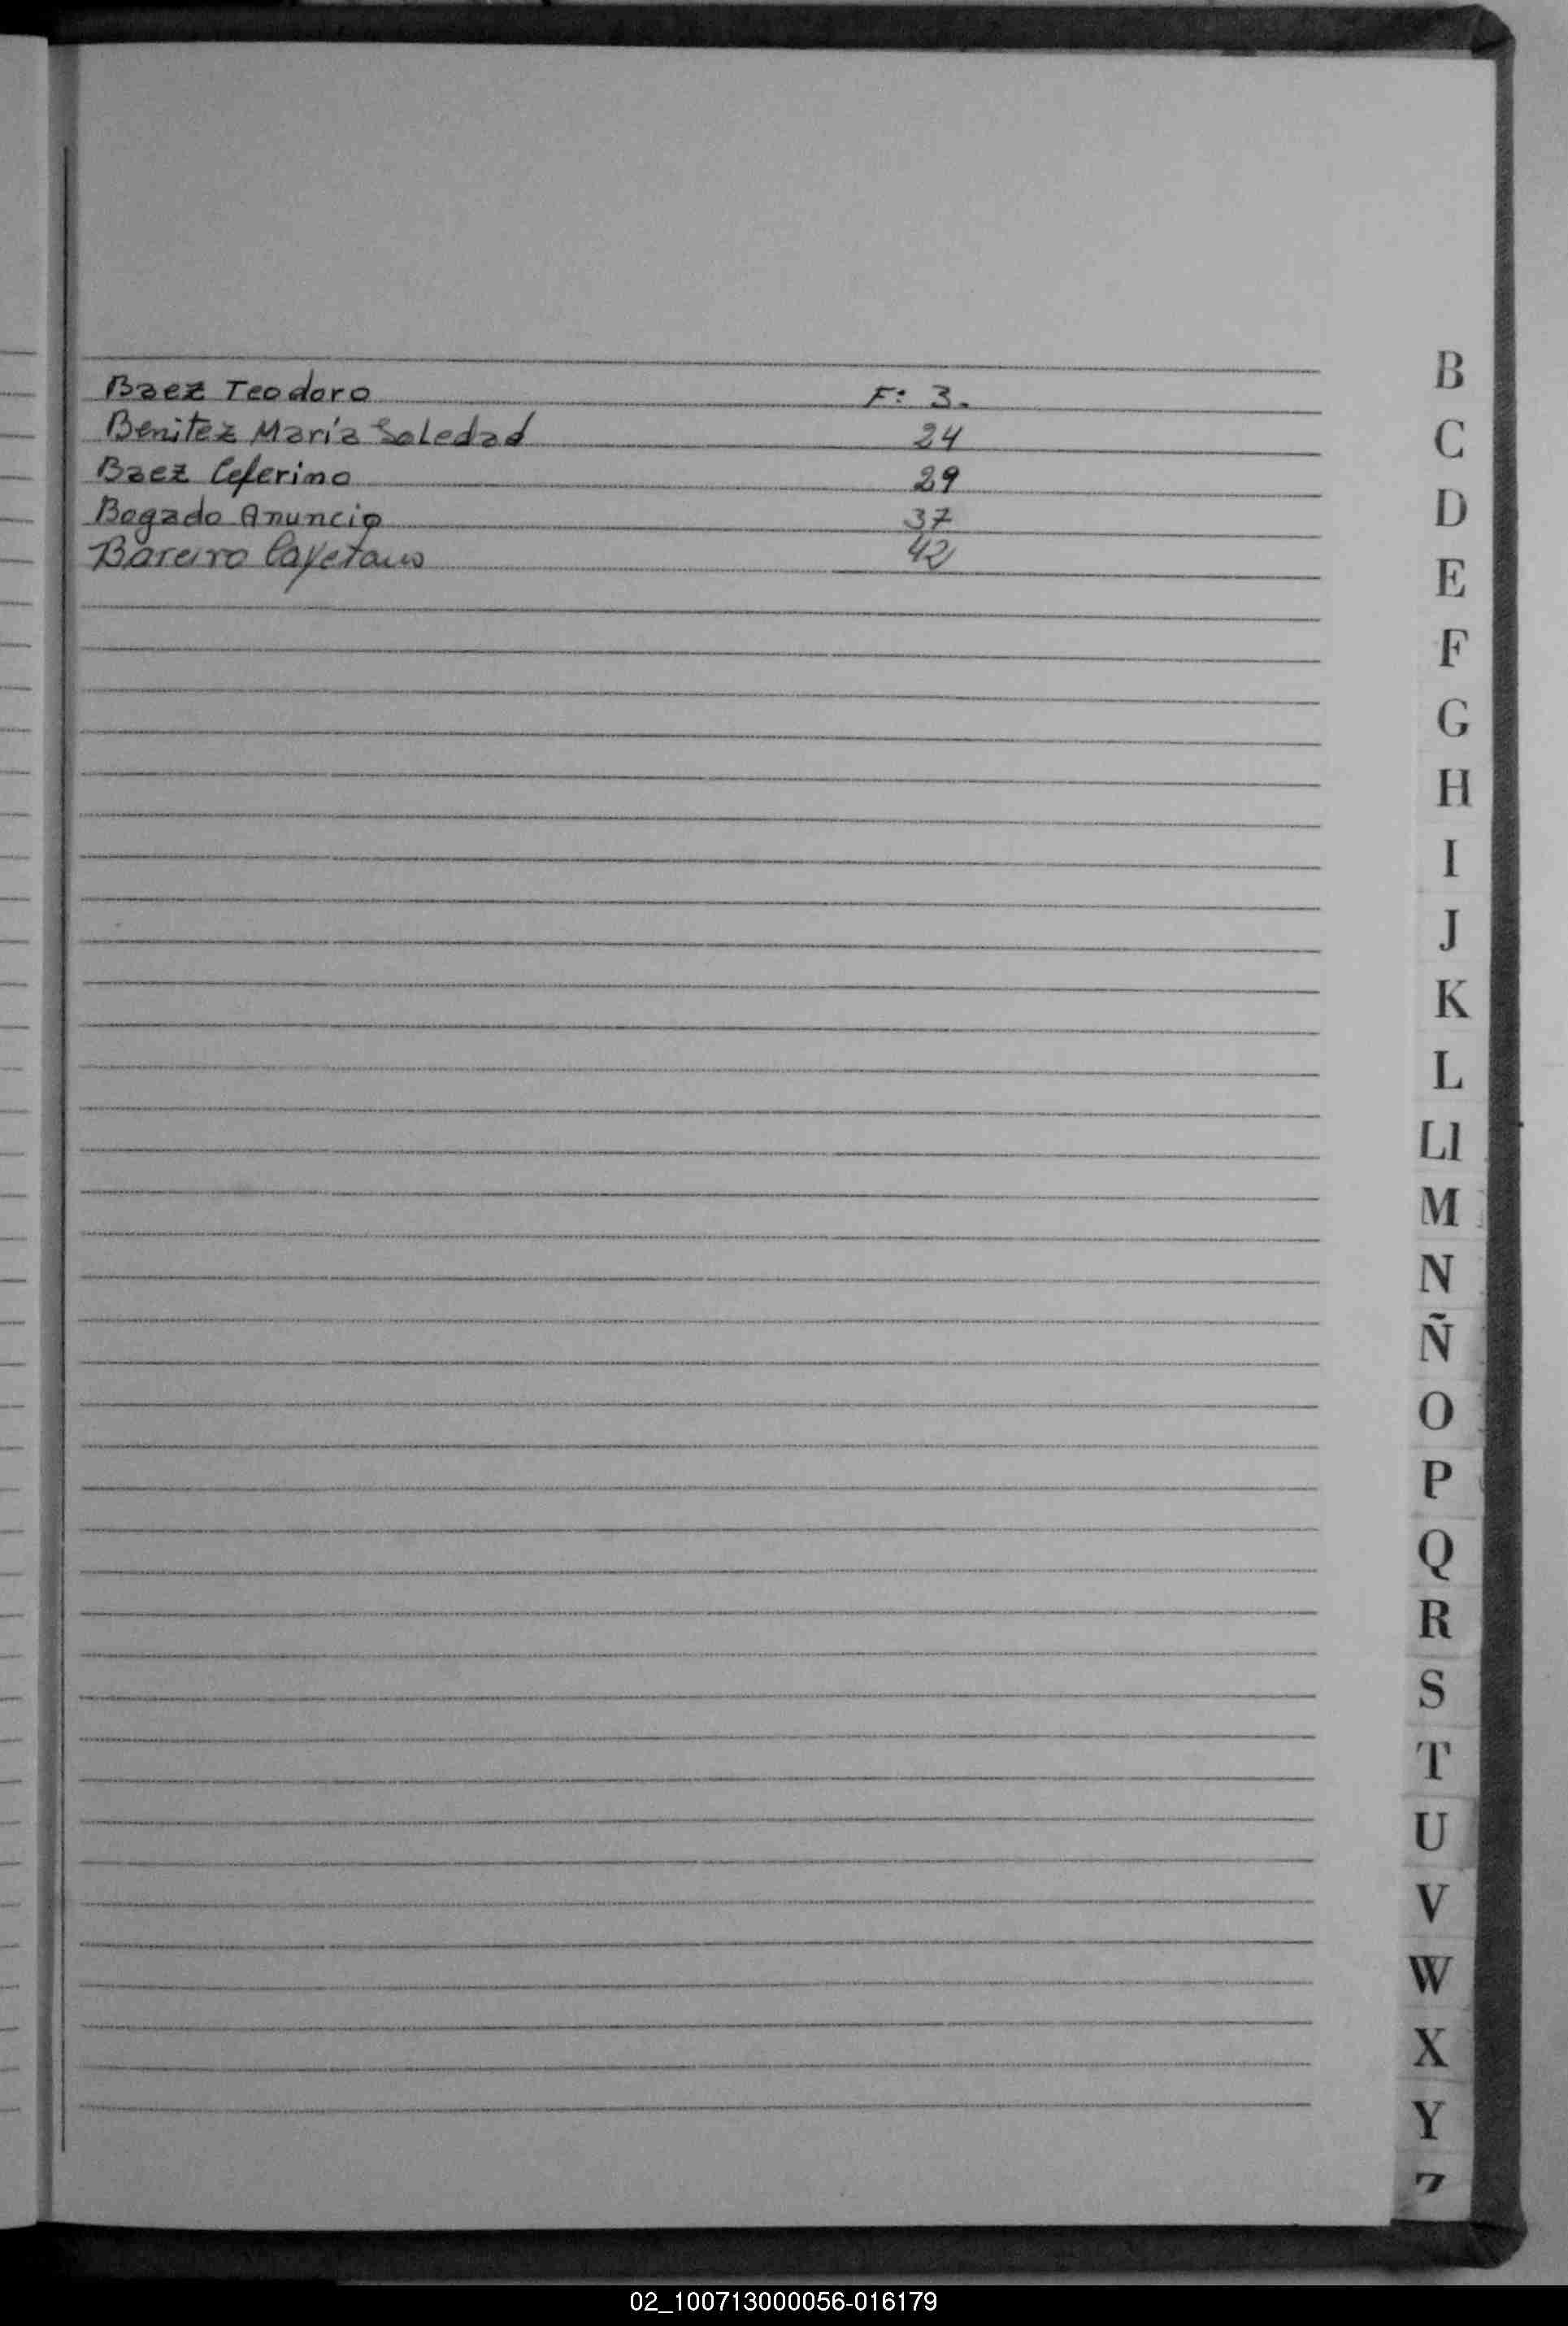 Baez Teodoro F: 3.
Benitez María Soledad 24
Baez Ceferino 29
Bogado Anuncio 37
Bareiro Cayetano 42
B
C
D
E
F
G
H
I
J
K
L
Ll
M
N
Ñ
O
P
Q
R
S
T
U
V
W
X
Y
Z
02_100713000056-016179